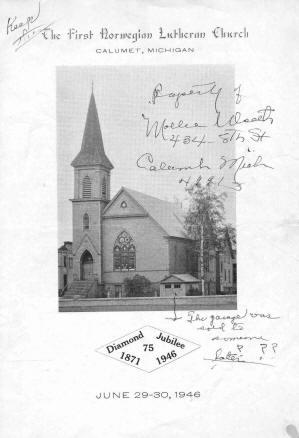 Keep
The First Norwegian Lutheran Church
CALUMET, MICHIGAN
Property of
Mollie
434 - 8th St
Calumet Mich
49913
The garage was
sold to
someone
? ??
later
Diamond Jubilee
75
1871 1946
JUNE 29-30, 1946